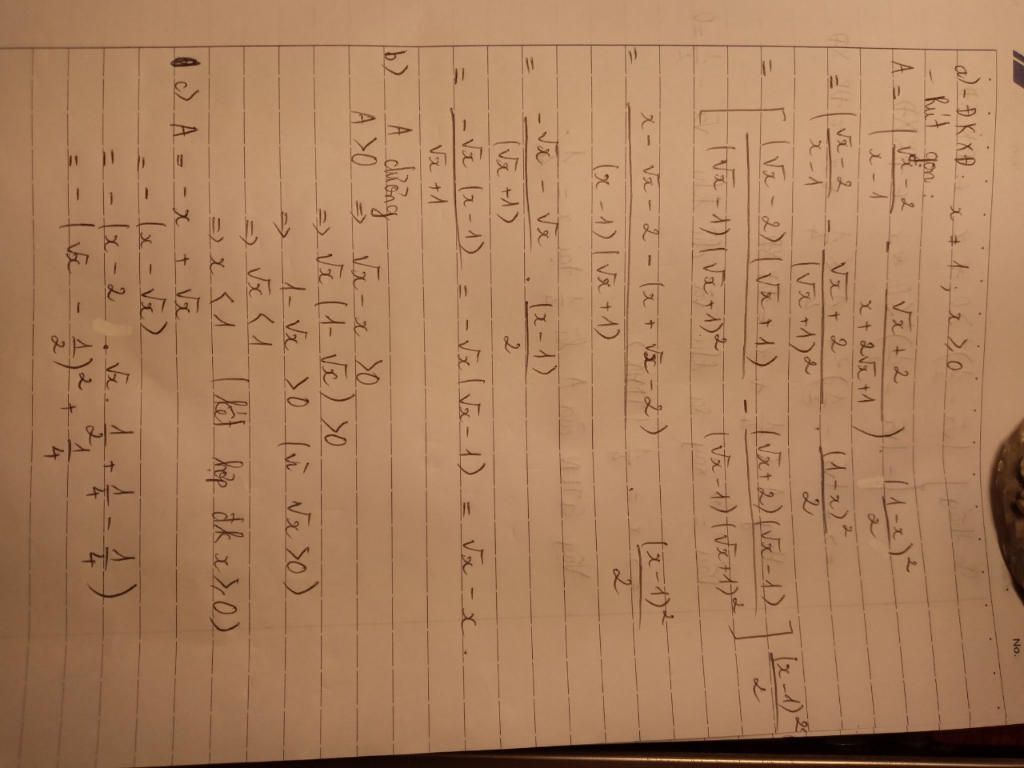 a) - ĐKXĐ: x ≠ 1, x ≥ 0
- Rút gọn:
A = (√x - 2 / x - 1 - √x + 2 / x + 2√x + 1) . (1 - x)² / 2
= (√x - 2 / x - 1 - √x + 2 / (√x + 1)²) . (1 - x)² / 2
= [(√x - 2)(√x + 1) / (√x - 1)(√x + 1)² - (√x + 2)(√x - 1) / (√x - 1)(√x + 1)²] (x - 1)² / 2
= x - √x - 2 - (x + √x - 2) / (x - 1)(√x + 1) . (x - 1)² / 2
= -√x - √x / (√x + 1) . (x - 1) / 2
= -√x (x - 1) / √x + 1 = -√x (√x - 1) = √x - x.
b) A dương
A > 0 => √x - x > 0
=> √x (1 - √x) > 0
=> 1 - √x > 0 (vì √x > 0)
=> √x < 1
=> x < 1 (kết hợp đk x ≥ 0)
c) A = -x + √x
= - (x - √x)
= - (x - 2 . √x . 1/2 + 1/4 - 1/4)
= - (√x - 1/2)² + 1/4
No.